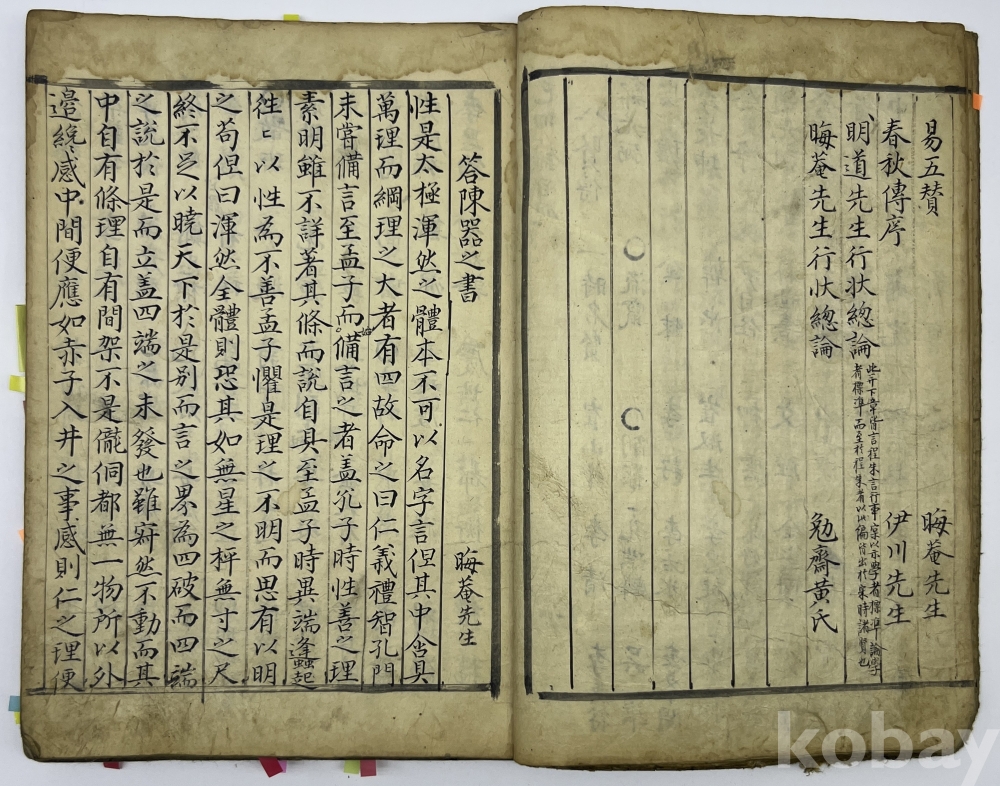 易五贊 晦菴先生
春秋傳序 伊川先生
明道先生行狀總論
晦菴先生行狀總論 勉齋黃氏
答陳器之書 晦菴先生
性是太極渾然之體本不可以名字言但其中含具
萬理而綱理之大者有四故命之曰仁義禮智孔門
未嘗備言至孟子而備言之者盖孔子時性善之理
素明雖不詳著其條而說自具至孟子時異端蜂起
徃〻以性為不善孟子懼是理之不明而思有以明
之苟但曰渾然全體則恐其如無星之秤無寸之尺
終不足以曉天下於是別而言之界為四破而四端
之說於是而立盖四端之未發也雖寂然不動而其
中自有條理自有間架不是儱侗都無一物所以外
邉纔感中間便應如赤子入井之事感則仁之理便
kobay